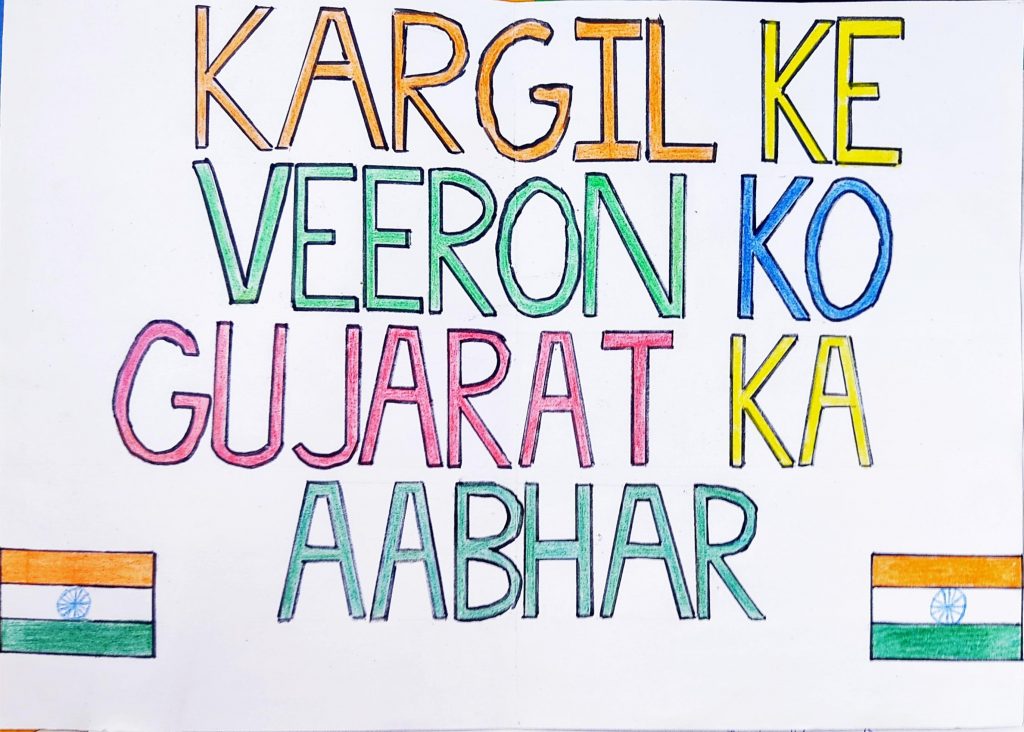 KARGIL KE
VEERON KO
GUJARAT KA
AABHAR